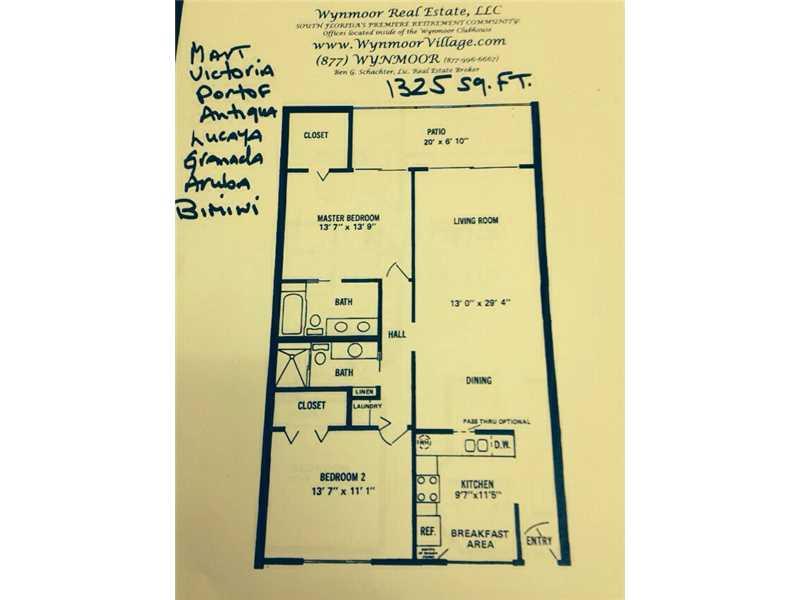 Wynmoor Real Estate, LLC
SOUTH FLORIDA'S PREMIERE RETIREMENT COMMUNITY
Offices located inside of the Wynmoor Clubhouse
www.WynmoorVillage.com
(877) WYNMOOR (877-996-6667)
Ben G. Schachter, Lic. Real Estate Broker
1325 SQ.FT.
MART
Victoria
PORTOF
Antigua
Lucaya
Granada
Aruba
Bimini
CLOSET
PATIO
20' x 6' 10"
MASTER BEDROOM
13' 7" x 13' 9"
LIVING ROOM
13' 0" x 29' 4"
BATH
HALL
BATH
DINING
LINEN
LAUNDRY
CLOSET
PASS THRU OPTIONAL
WH
D.W.
BEDROOM 2
13' 7" x 11' 1"
KITCHEN
9'7"x11'5"
REF.
BREAKFAST
AREA
ENTRY